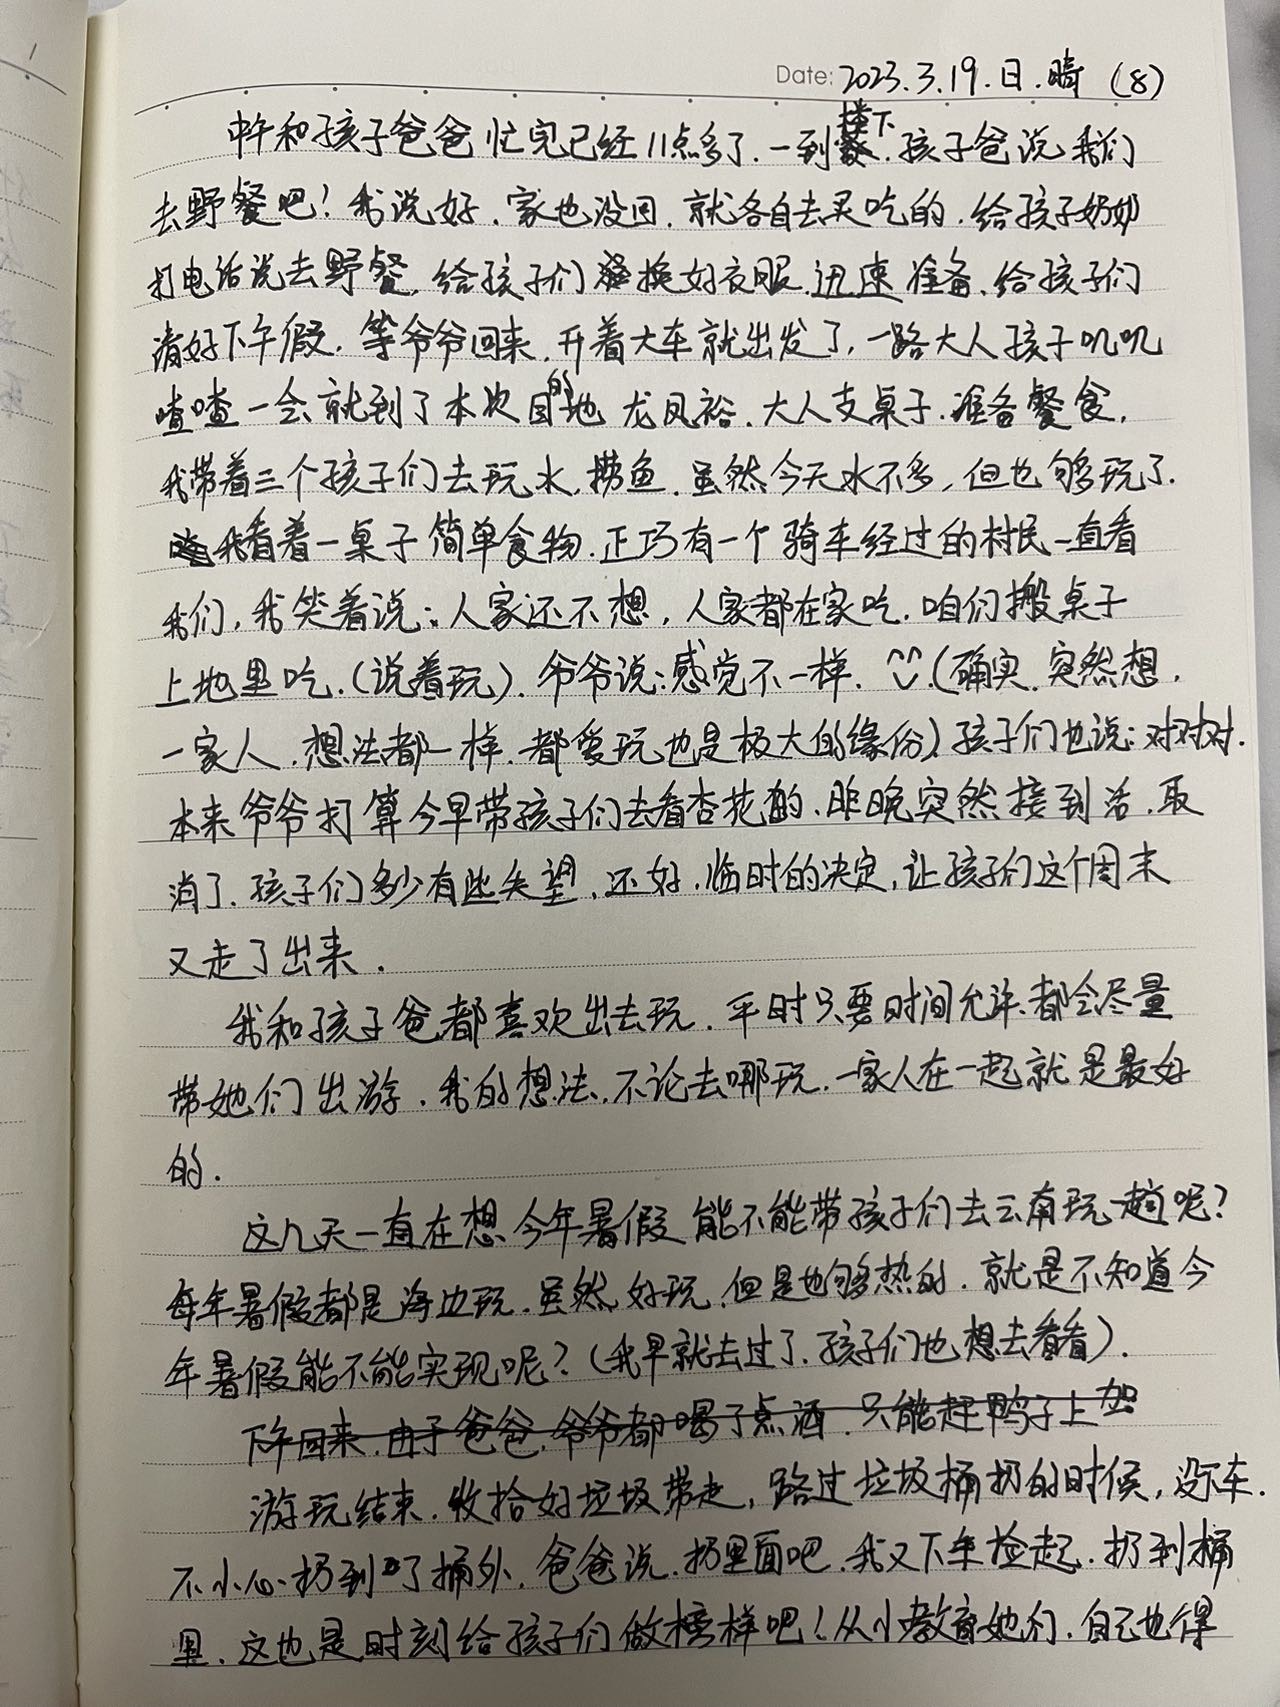 Date: 2023.3.19.日.晴 (8)
中午和孩子爸爸忙完已经11点多了.一到楼下.孩子爸说我们
去野餐吧！我说好.家也没回.就各自去买吃的.给孩子奶奶
打电话说去野餐.给孩子们换好衣服.迅速准备.给孩子们
请好下午假.等爷爷回来.开着大车就出发了.一路大人孩子叽叽
喳喳一会就到了本次目的地龙凤裕.大人支桌子.准备餐食.
我带着三个孩子们去玩水.捞鱼.虽然今天水不多,但也够玩了.
我看着一桌子简单食物.正巧有一个骑车经过的村民一直看
我们,我笑着说:人家还不想,人家都在家吃.咱们搬桌子
上地里吃.(说着玩).爷爷说:感觉不一样.(确实.突然想.
一家人.想法都一样.都爱玩也是极大的缘份)孩子们也说:对对对.
本来爷爷打算今早带孩子们去看杏花的.昨晚突然接到活.取
消了.孩子们多少有些失望.还好.临时的决定,让孩子们这个周末
又走了出来.
我和孩子爸都喜欢出去玩.平时只要时间允许.都会尽量
带她们出游.我的想法.不论去哪玩.一家人在一起就是最好
的.
这几天一直在想今年暑假能不能带孩子们去云南玩一趟呢?
每年暑假都是海边玩.虽然好玩.但是也够热的.就是不知道今
年暑假能不能实现呢?(我早就去过了.孩子们也想去看看).
下午回来.由于爸爸.爷爷都喝了点酒.只能赶鸭子上架
游玩结束.收拾好垃圾带走,路过垃圾桶扔的时候,没下车.
不小心扔到了桶外.爸爸说.扔里面吧.我又下车捡起.扔到桶
里.这也是时刻给孩子们做榜样吧!从小教育她们.自己也得